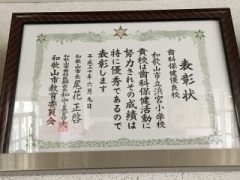 表彰状
歯科保健優良校
和歌山市立浜宮小学校
貴校は歯科保健活動に
努力されその成績は
特に優秀であるので
表彰します
平成二十八年六月九日
和歌山市長 尾花正啓
和歌山市教育委員会